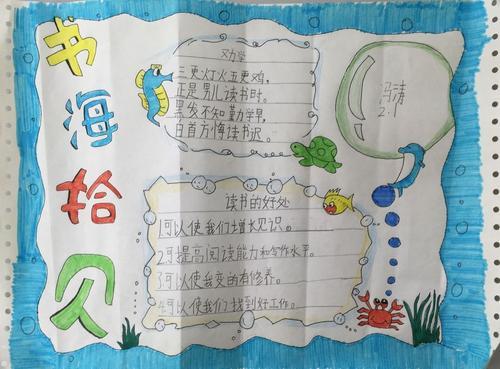 书海拾贝
劝学
三更灯火五更鸡,
正是男儿读书时。
黑发不知勤学早,
白首方悔读书迟。
2.1
读书的好处
1可以使我们增长见识。
2.可提高阅读能力和写作水平。
3.可以使我变的有修养。
4.可以使我们找到好工作。